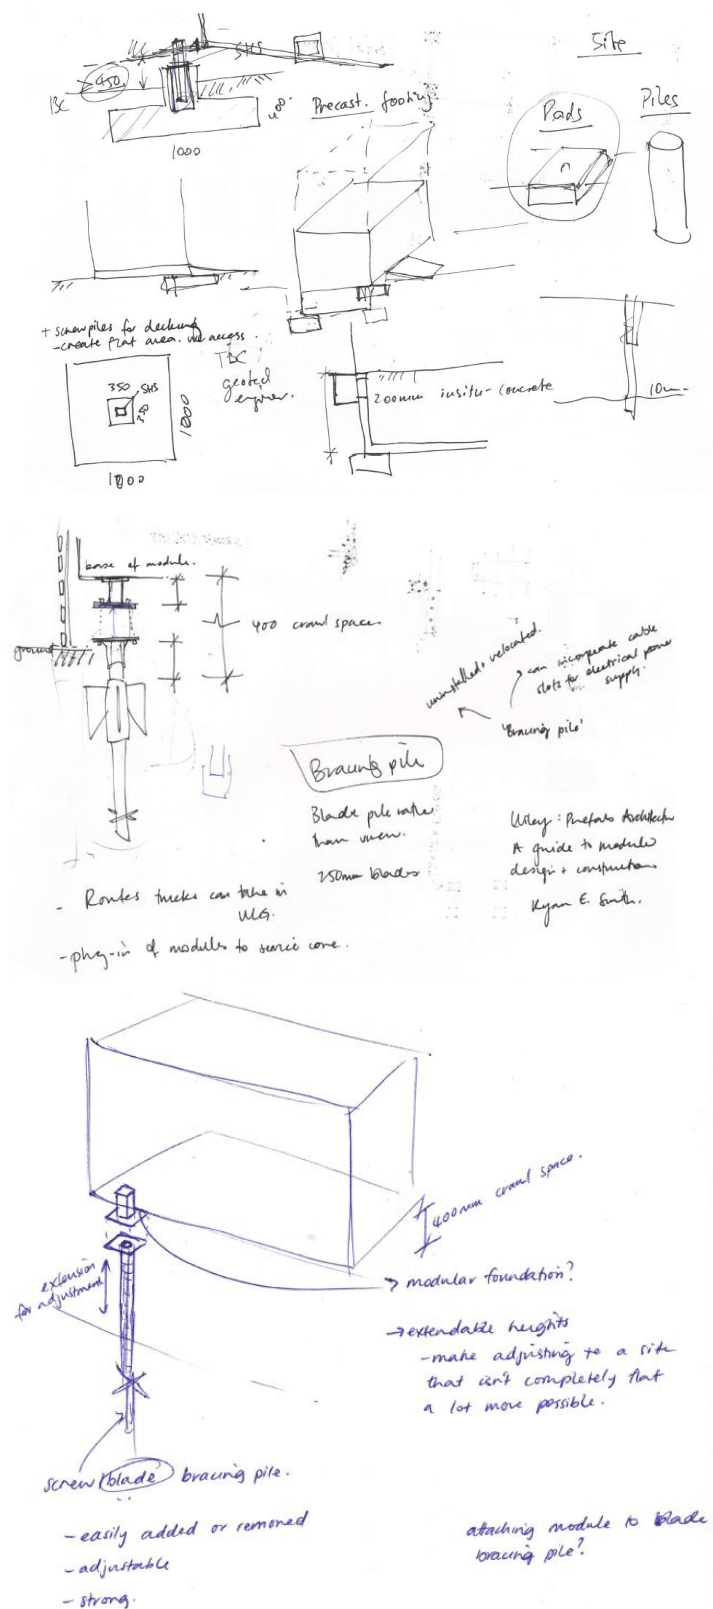 SHS
Site
450
400
Precast footing.
Pads
Piles
1000
+ screw piles for decking
- create flat area. access.
TBC
geotech
engineer.
350
SHS
1000
1000
200mm insitu-concrete
10m
base of module.
400 crawl space.
ground
uninstalled + relocated.
can incorporate cable
slots for electrical power
supply.
'Bracing pile'
Bracing pile
Blade pile rather
than screw.
250mm blades
Wiley: Prefab Architecture
A guide to modular
design + construction
Ryan E. Smith.
- Routes trucks can take in
- plug-in of modules to service core.
400mm crawl space.
extension
for adjustment
→ modular foundation?
→ extendable heights
- make adjusting to a site
that isn't completely flat
a lot more possible.
screw/blade bracing pile.
- easily added or removed
- adjustable
- strong.
attaching module to blade
bracing pile?